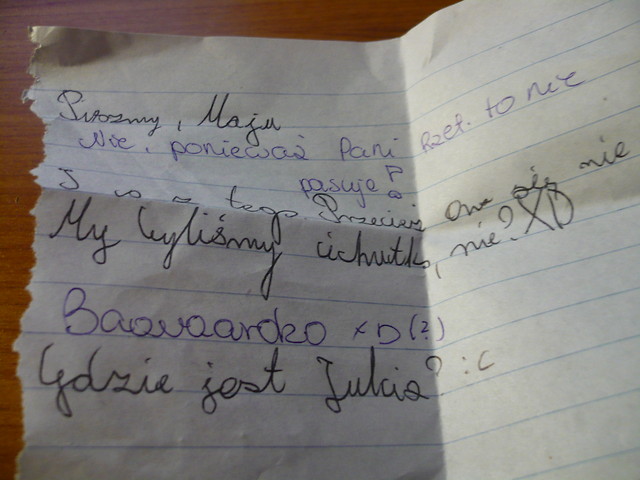 Piszmy, Maju
Nie, ponieważ Pani rzekł. to nie
pasuje?
I co z tego Przecież one się nie
My byliśmy cichutko, nie? XD
Baowaardko XD (?)
Gdzie jest Julcia? :c